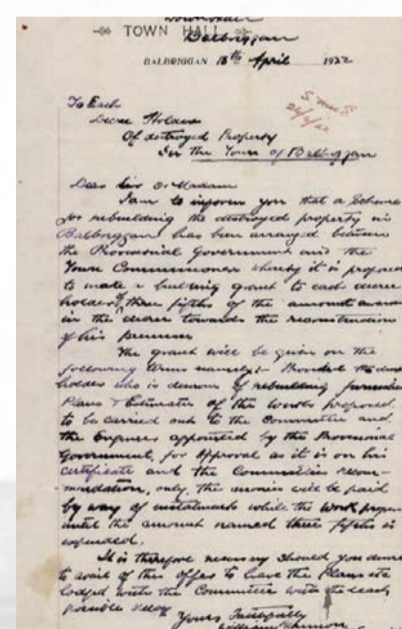 Town Hall
Balbriggan
TOWN HALL
BALBRIGGAN 18th April 1922
To Each
Decree Holder
Of destroyed Property
In the Town of Balbriggan
Dear Sir or Madam
I am to inform you that a Scheme
for rebuilding the destroyed property in
Balbriggan has been arranged between
the Provisional Government and the
Town Commissioners whereby it is proposed
to make a building grant to each decree
holder of three fifths of the amount award
in the decree towards the reconstruction
of his premises
The grant will be given on the
following terms namely:- Provided the decree
holder who is desirous of rebuilding furnishes
Plans & Estimates of the works proposed
to be carried out to the Committee and
the Engineer appointed by the Provisional
Government, for approval as it is on his
certificate and the Committees recom-
mendation, only, the monies will be paid
by way of instalments while the work progress
until the amount named three fifths is
expended.
It is therefore necessary should you desire
to avail of this offer to have the Plans etc
lodged with the Committee with the least
possible delay
Yours Faithfully